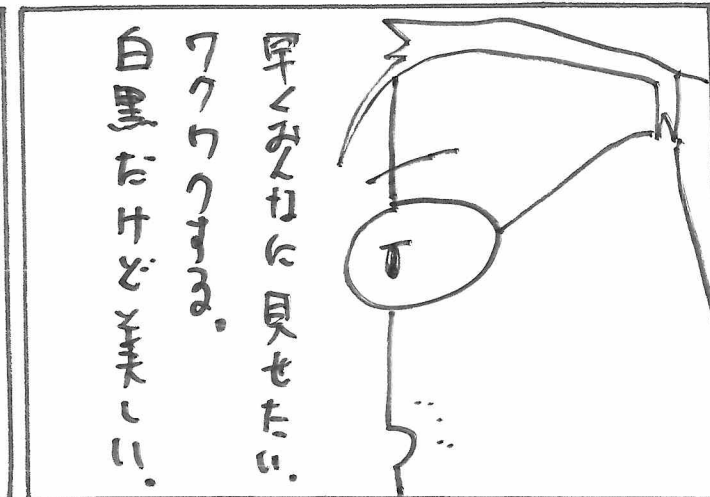 早くみんなに見せたい。
ワクワクする。
白黒だけど美しい。